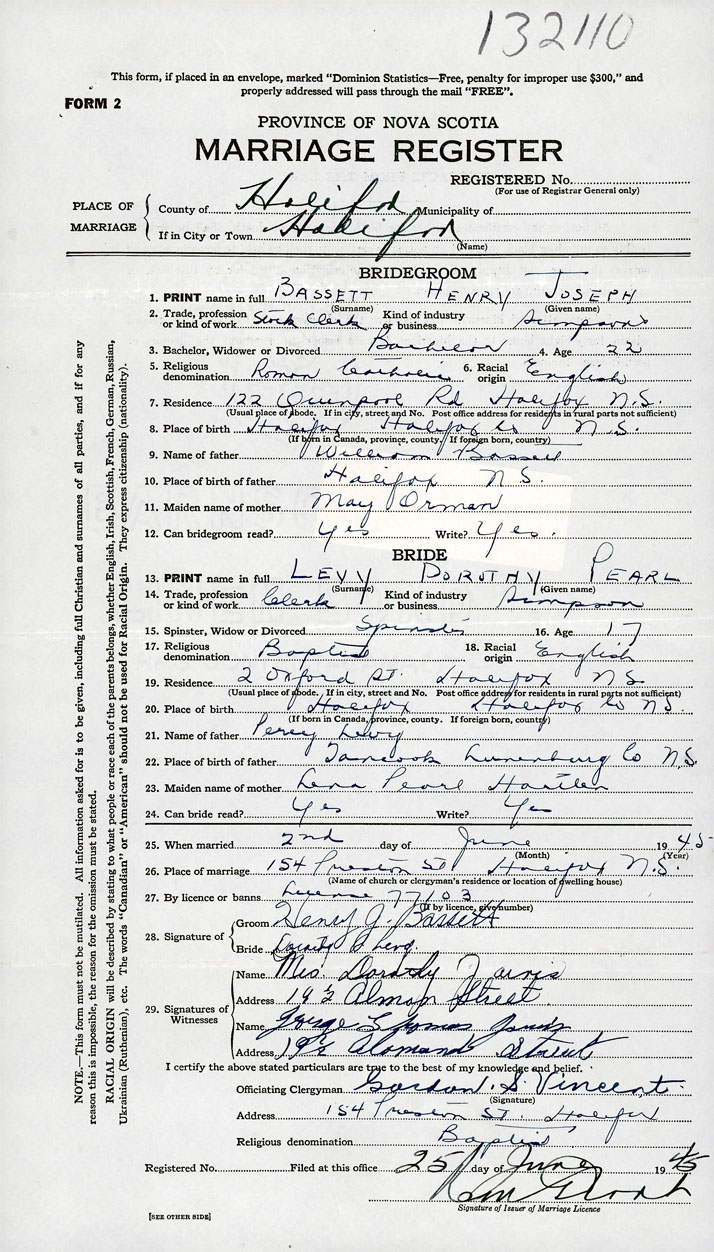 132110
This form, if placed in an envelope, marked “Dominion Statistics—Free, penalty for improper use $300,” and
properly addressed will pass through the mail “FREE”.
FORM 2
PROVINCE OF NOVA SCOTIA
MARRIAGE REGISTER
REGISTERED No.
(For use of Registrar General only)
PLACE OF MARRIAGE
County of Halifax Municipality of
If in City or Town Halifax
(Name)
BRIDEGROOM
1. PRINT name in full BASSETT HENRY JOSEPH
(Surname) (Given name)
2. Trade, profession or kind of work Stock Clerk Kind of industry or business Simpsons
3. Bachelor, Widower or Divorced Bachelor 4. Age 22
5. Religious denomination Roman Catholic 6. Racial origin English
7. Residence 122 Quinpool Rd Halifax N.S.
(Usual place of abode. If in city, street and No. Post office address for residents in rural parts not sufficient)
8. Place of birth Halifax Halifax Co N.S.
(If born in Canada, province, county. If foreign born, country)
9. Name of father William Bassett
10. Place of birth of father Halifax N.S.
11. Maiden name of mother May Orman
12. Can bridegroom read? Yes Write? Yes.
BRIDE
13. PRINT name in full LEVY DOROTHY PEARL
(Surname) (Given name)
14. Trade, profession or kind of work Clerk Kind of industry or business Simpson
15. Spinster, Widow or Divorced Spinster 16. Age 17
17. Religious denomination Baptist 18. Racial origin English
19. Residence 2 Oxford St. Halifax N.S.
(Usual place of abode. If in city, street and No. Post office address for residents in rural parts not sufficient)
20. Place of birth Halifax Halifax Co N.S.
(If born in Canada, province, county. If foreign born, country)
21. Name of father Percy Levy
22. Place of birth of father Tancook Lunenburg Co N.S.
23. Maiden name of mother Lena Pearl
24. Can bride read? Yes Write? Yes
25. When married 2nd day of June 1945
(Month) (Year)
26. Place of marriage 154 Preston St Halifax N.S.
(Name of church or clergyman's residence or location of dwelling house)
27. By licence or banns License 77103
(If by licence, give number)
28. Signature of
Groom Henry J. Bassett
Bride Dorothy P Levy.
29. Signatures of Witnesses
Name Mrs. Dorothy Jarvis
Address 19½ Almon Street.
Name George Jarvis
Address 19½ Street
I certify the above stated particulars are true to the best of my knowledge and belief.
Officiating Clergyman Gordon S. Vincent.
(Signature)
Address 154 Preston St. Halifax
Religious denomination Baptist
Registered No. Filed at this office 25 day of June 1945
Signature of Issuer of Marriage Licence
[SEE OTHER SIDE]
NOTE.—This form must not be mutilated. All information asked for is to be given, including full Christian and surnames of all parties, and if for any
reason this is impossible, the reason for the omission must be stated.
RACIAL ORIGIN will be described by stating to what people or race each of the parents belongs, whether English, Irish, Scottish, French, German, Russian,
Ukrainian (Ruthenian), etc. The words “Canadian” or “American” should not be used for Racial Origin. They express citizenship (nationality).